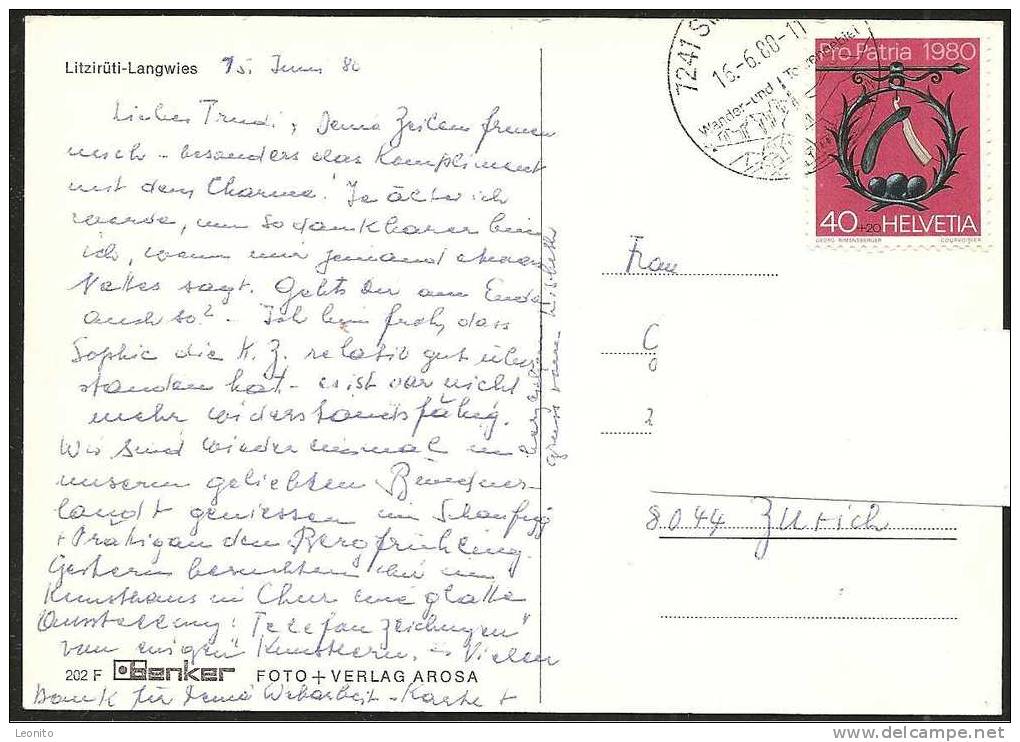 Litzirüti-Langwies 15. Juni 80
Liebes Trudi, Deine Zeilen freuen
mich - besonders das Kompliment
mit dem Charme! Je älter ich
werde, um so dankbarer bin
ich, wenn mir jemand etwas
Nettes sagt. Gehts Dir am Ende
auch so? - Ich bin froh, dass
Sophie die K. Z. relativ gut über-
standen hat - es ist gar nicht
mehr widerstandsfähig.
Wir sind wieder einmal in
unserm geliebten Bündner-
land + geniessen im Schanfigg
+ Prätigau den Bergfrühling.
Gestern besuchten wir im
Kunsthaus in Chur eine glatte
Ausstellung: "Telefonzeichnungen"
von einigen Künstlern. - Vielen
Dank für Deine Webarbeit-Karte +
gruss von Lisbeth
202 F Benker FOTO + VERLAG AROSA
7241
16.-6.80-11
Wander- und Tourengebiet
Pro Patria 1980
40+20 HELVETIA
GEORG RIMENSBERGER COURVOISIER
Frau
C
8
2
8044 Zürich
Leonito
delcampe.net